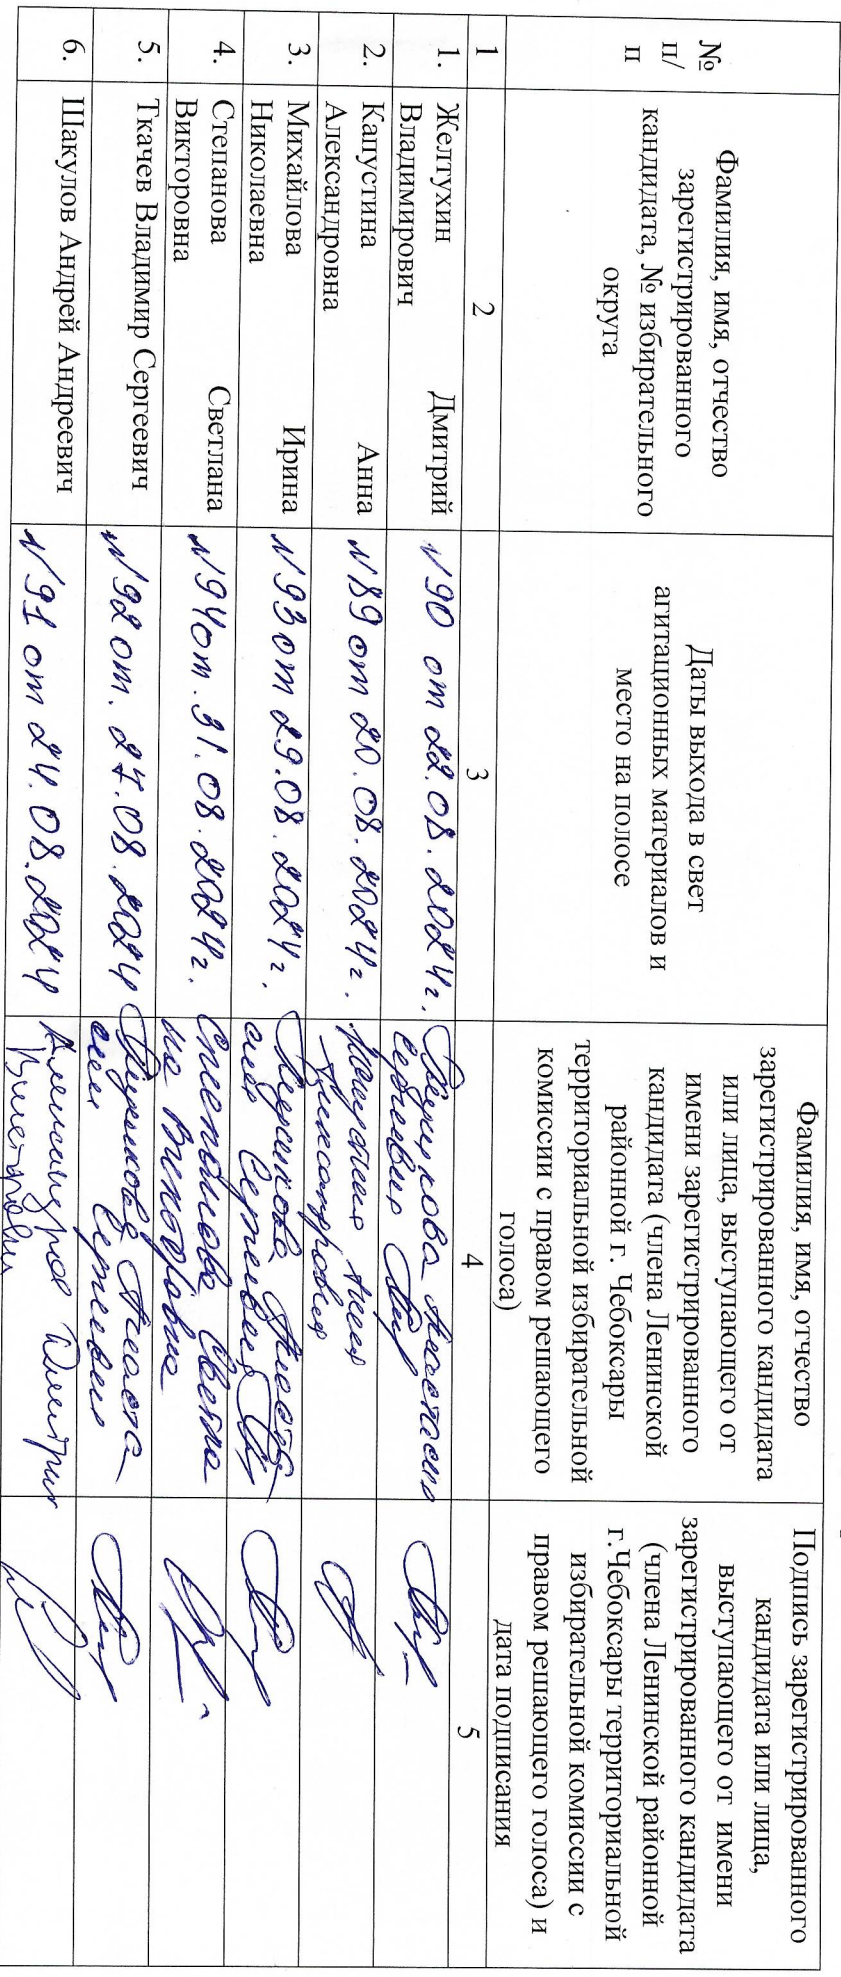 №
п/
п
Фамилия, имя, отчество
зарегистрированного
кандидата, № избирательного
округа
Даты выхода в свет
агитационных материалов и
место на полосе
Фамилия, имя, отчество
зарегистрированного кандидата
или лица, выступающего от
имени зарегистрированного
кандидата (члена Ленинской
районной г. Чебоксары
территориальной избирательной
комиссии с правом решающего
голоса)
Подпись зарегистрированного
кандидата или лица,
выступающего от имени
зарегистрированного кандидата
(члена Ленинской районной
г.Чебоксары территориальной
избирательной комиссии с
правом решающего голоса) и
дата подписания
1
2
3
4
5
1.
Желтухин Дмитрий
Владимирович
№90 от 22.08.2024г.
Сергеевна
2.
Капустина Анна
Александровна
№89 от 20.08.2024г.
Капустина Анна
Александровна
3.
Михайлова Ирина
Николаевна
№93 от 29.08.2024г.
Сергеевна
4.
Степанова Светлана
Викторовна
№94 от. 31.08.2024г.
Степанова Светла
на Викторовна
5.
Ткачев Владимир Сергеевич
№92 от. 27.08.2024
Сергеевна
6.
Шакулов Андрей Андреевич
№91 от 24.08.2024
Александров Дмитрий